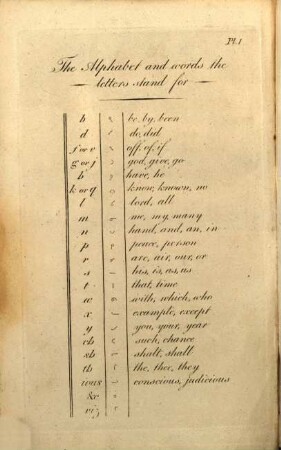 Pl.1
The Alphabet and words the
letters stand for
b be, by, been
d do, did
f or v off, of, if
g or j god, give, go
h have, he
k or q know, known, no
l lord, all
m me, my, many
n hand, and, an, in
p peace, person
r are, air, our, or
s his, is, as, us
t that, time
w with, which, who
x example, except
y you, your, year
ch such, chance
sh shalt, shall
th the, thee, they
ious conscious, judicious
&c
viz